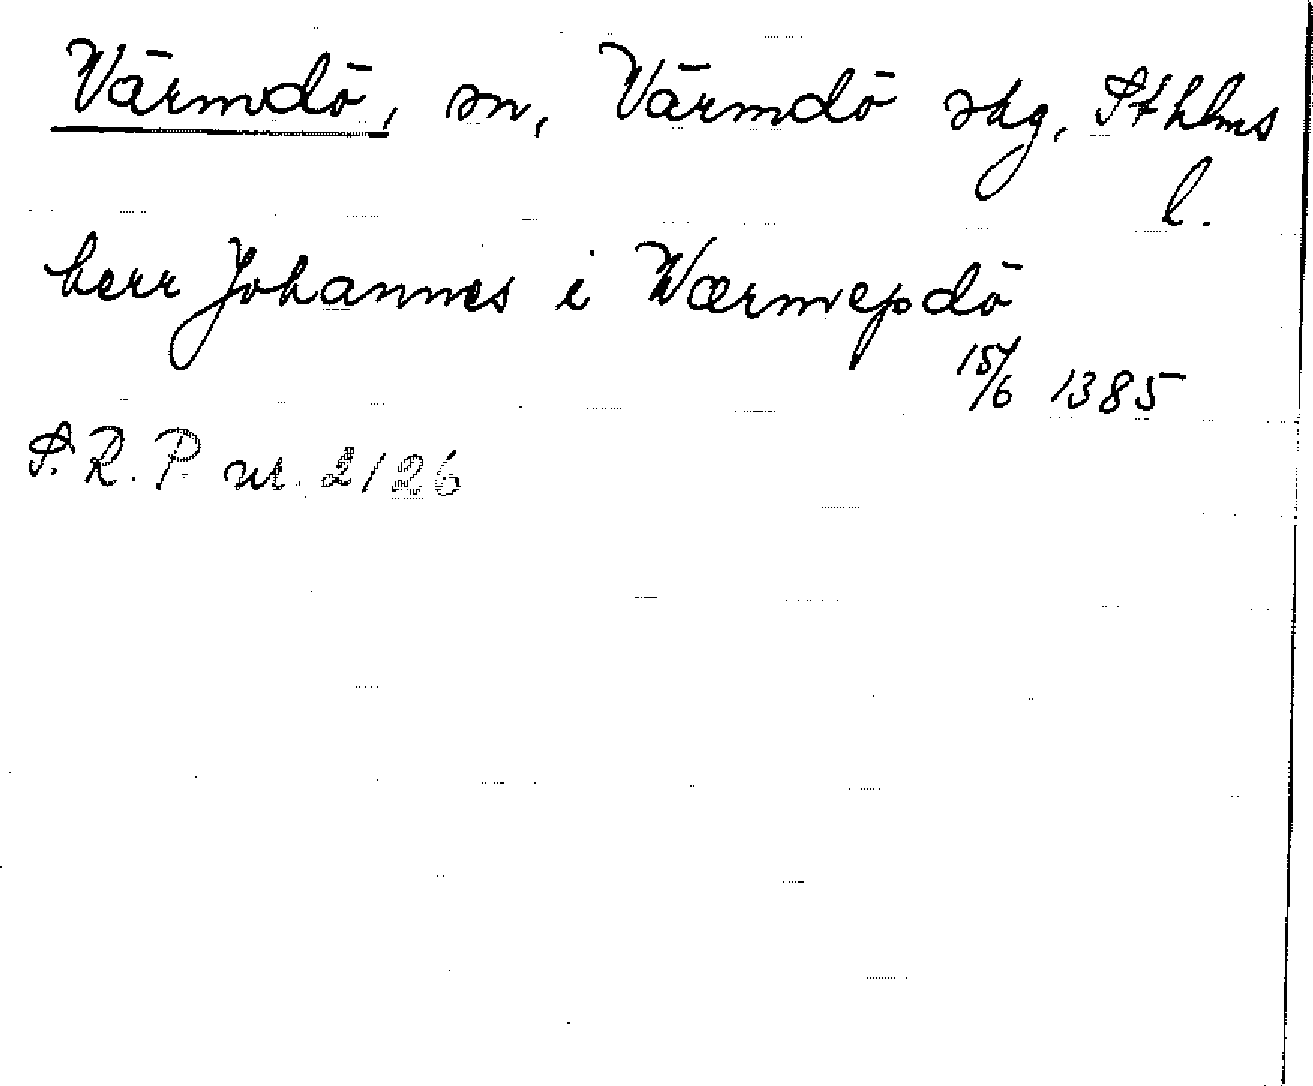 Värmdö, sn, Värmdö skg, Sthlms
l.
herr Johannes i Wærmepdö
15/6 1385
S.R.P. nr. 2126